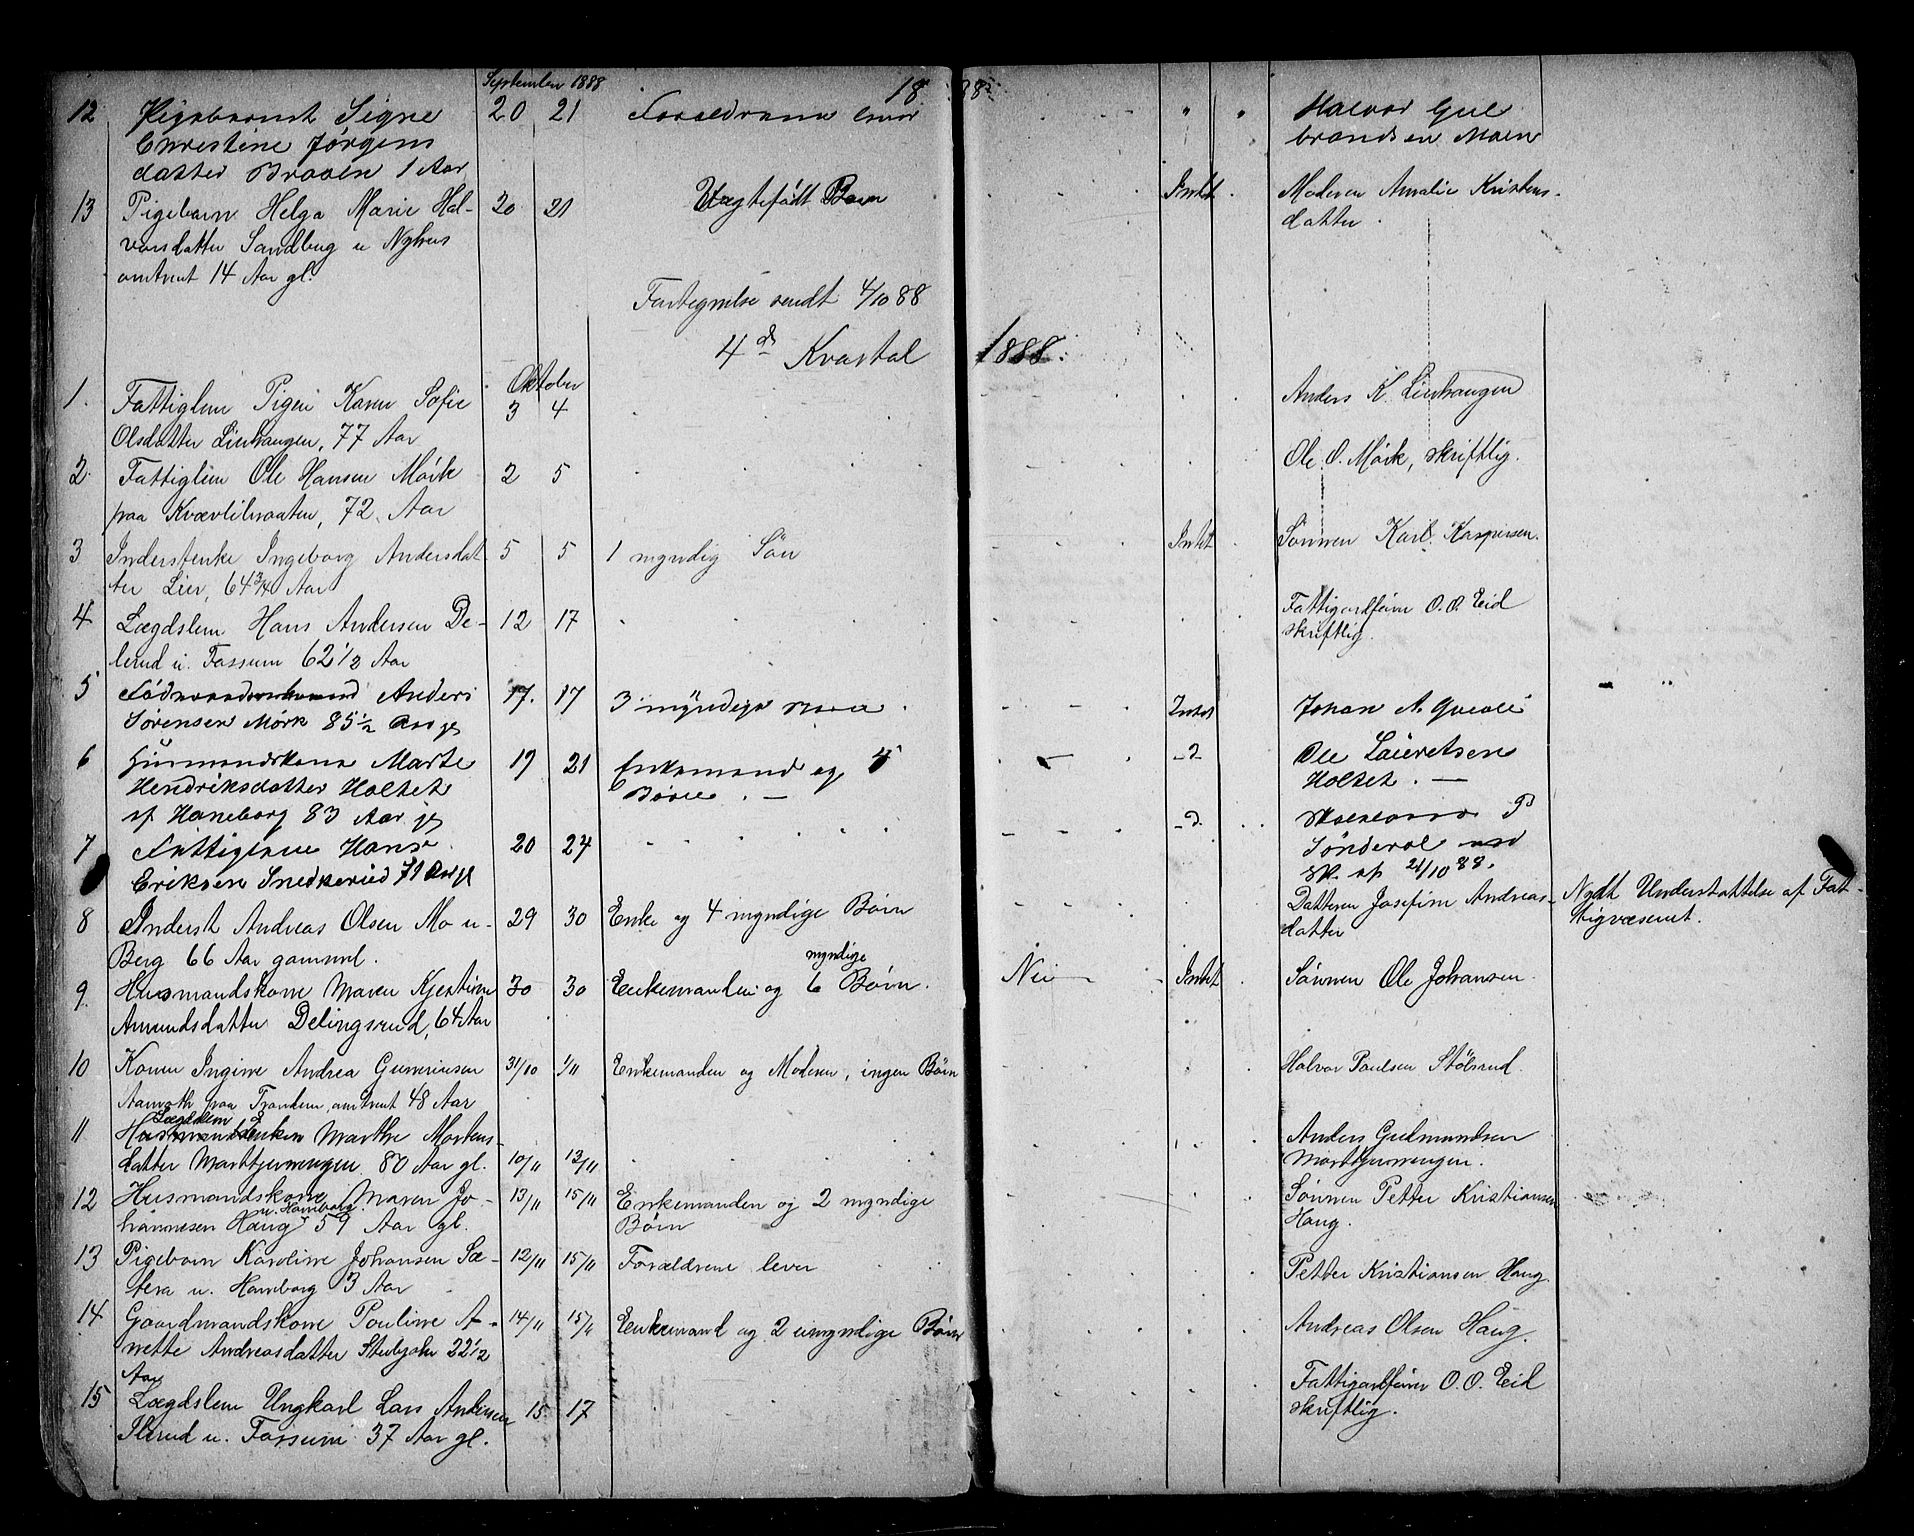 September 1888
18 88
12 Pigebarnet Signe 20 21 Forældrene lever " Halvor Gul
Christine Jørgens brandsen Moen
datter Braaten 1 Aar
13 Pigebarn Helga Marie Hal- 20 21 Uægtefødt Barn Intet Moderen Amalie Kristens-
vorsdatter Sandbug u Nyhus datter.
omtrent 14 Aar gl.
Fortegnelse sendt 4/10 88
4de Kvartal 1888.
Oktober
1. Fattiglem Pigen Karen Sofie 3 4 Anders K. Lienhaugen
Olsdatter Lienhaugen, 77 Aar
2. Fattiglem Ole Hansen Mörk 2 5 Ole O. Mörk, skriftlig.
paa 72 Aar
3 Inderstenke Ingeborg Andersdat- 5 5 1 myndig Sön Intet Sönnen Karl Kaspersen.
ter Lier, 64 3/4 Aar
4 Lægdslem Hans Andersen De- 12 17 Fattigardforv O. O. Eid
lerud u. Fossum 62 1/2 Aar skriftlig.
5 Anders 17. 17 3 myndige Intet Johan A.
Sørensen Mörk 85 1/2 Aar gl
6 Husmandskone Marte 19 21 Enkemand og 5 - " - Ole Lauretsen
Hendriksdatter Holtet Börn. — Holtet. —
af Haneborg 83 Aar gl
7 Fattiglem Hans 20 24 - " - P
Eriksen Snekkerud 71 Aar gl Sönderol
Sk. af 21/10 88.
8 Inderst Andreas Olsen Mo u- 29 30 Enke og 4 myndige Börn Datteren Josefine Andreas- Nydt Understøttelse af Fat-
Berg 66 Aar gammel. datter tigvæsenet.
myndige
9 Husmandskone Maren Kjestine 30 30 Enkemanden og 6 Börn. Nei Intet Sönnen Ole Johansen.
Amundsdatter Delingsrud, 64 Aar
10 Konen Ingine Andrea Gunneriusen 31/10 1/11 Enkemanden og Moderen, ingen Börn Halvor Paulsen Stölsrud.
paa omtrent 48 Aar
Lægdslem
11 Husmandsenken Marthe Mortens- 10/11 13/11 Anders Gulmundsen
datter Marttjernengen 80 Aar gl. Marttjernengen.
12 Husmandskone Maren Jo- 13/11 15/11 Enkemanden og 2 myndige Sönnen Petter Kristiansen
hannesen Haug u. Haneborg 59 Aar gl. Börn Haug.
13 Pigebarn Karoline Johansen Sæ- 12/11 15/11 Forældrene lever Petter Kristiansen Haug.
tera u. Haneborg 3 Aar
14 Gaardmandskone Pauline A- 14/11 15/11 Enkemand og 2 umyndige Börn Andreas Olsen Haug.
nette Andreasdatter 22 1/2
Aar
15 Lægdslem Ungkarl Lars Andersen 15 17 Fattigardforv O. O. Eid
u. Fossum 37 Aar gl. skriftlig.